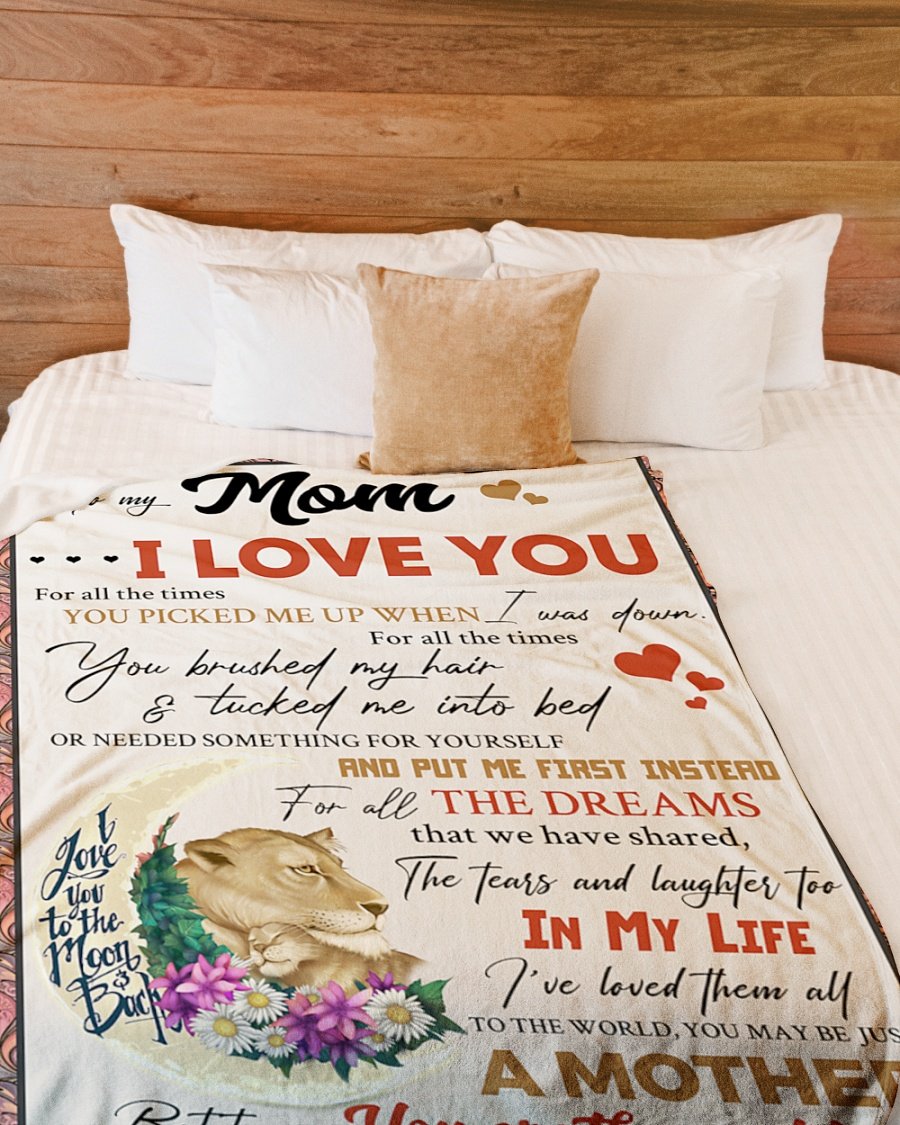 my Mom
I LOVE YOU
For all the times
YOU PICKED ME UP WHEN I was down.
For all the times
You brushed my hair
& tucked me into bed
OR NEEDED SOMETHING FOR YOURSELF
AND PUT ME FIRST INSTEAD
For all THE DREAMS
that we have shared,
The tears and laughter too
IN MY LIFE
I've loved them all
TO THE WORLD, YOU MAY BE JUS
A MOTHER
I
Love
You
to the
Moon
&
Back